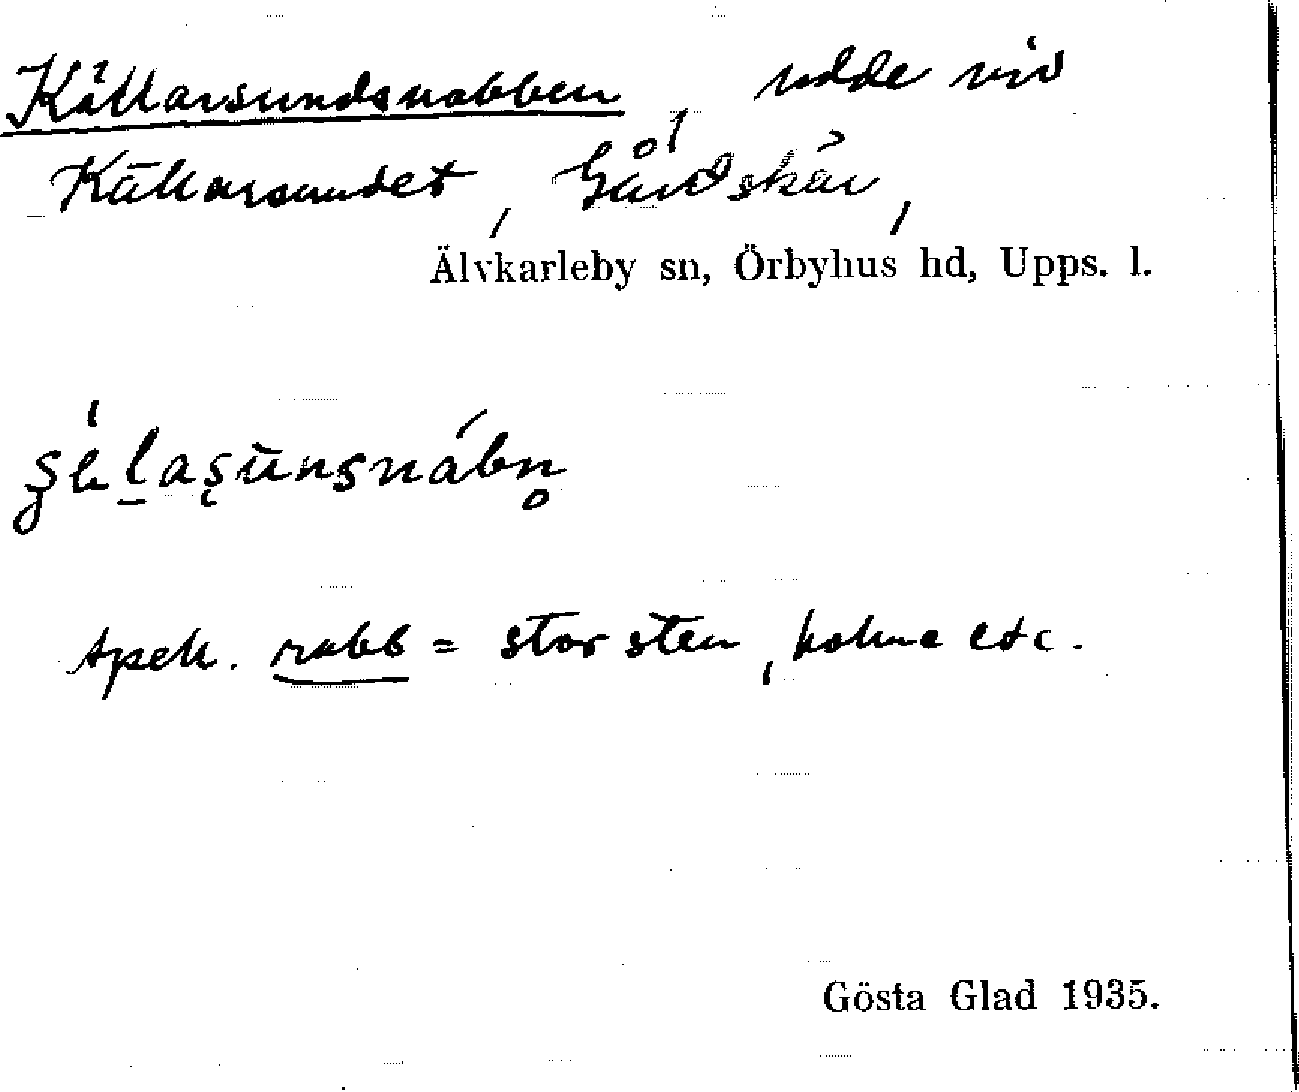 Källarsundsnabben, udde vid
Källarsundet, Gårdskär,
Älvkarleby sn, Örbyhus hd, Upps. l.
Apell. nabb = stor sten, holme etc.
Gösta Glad 1935.